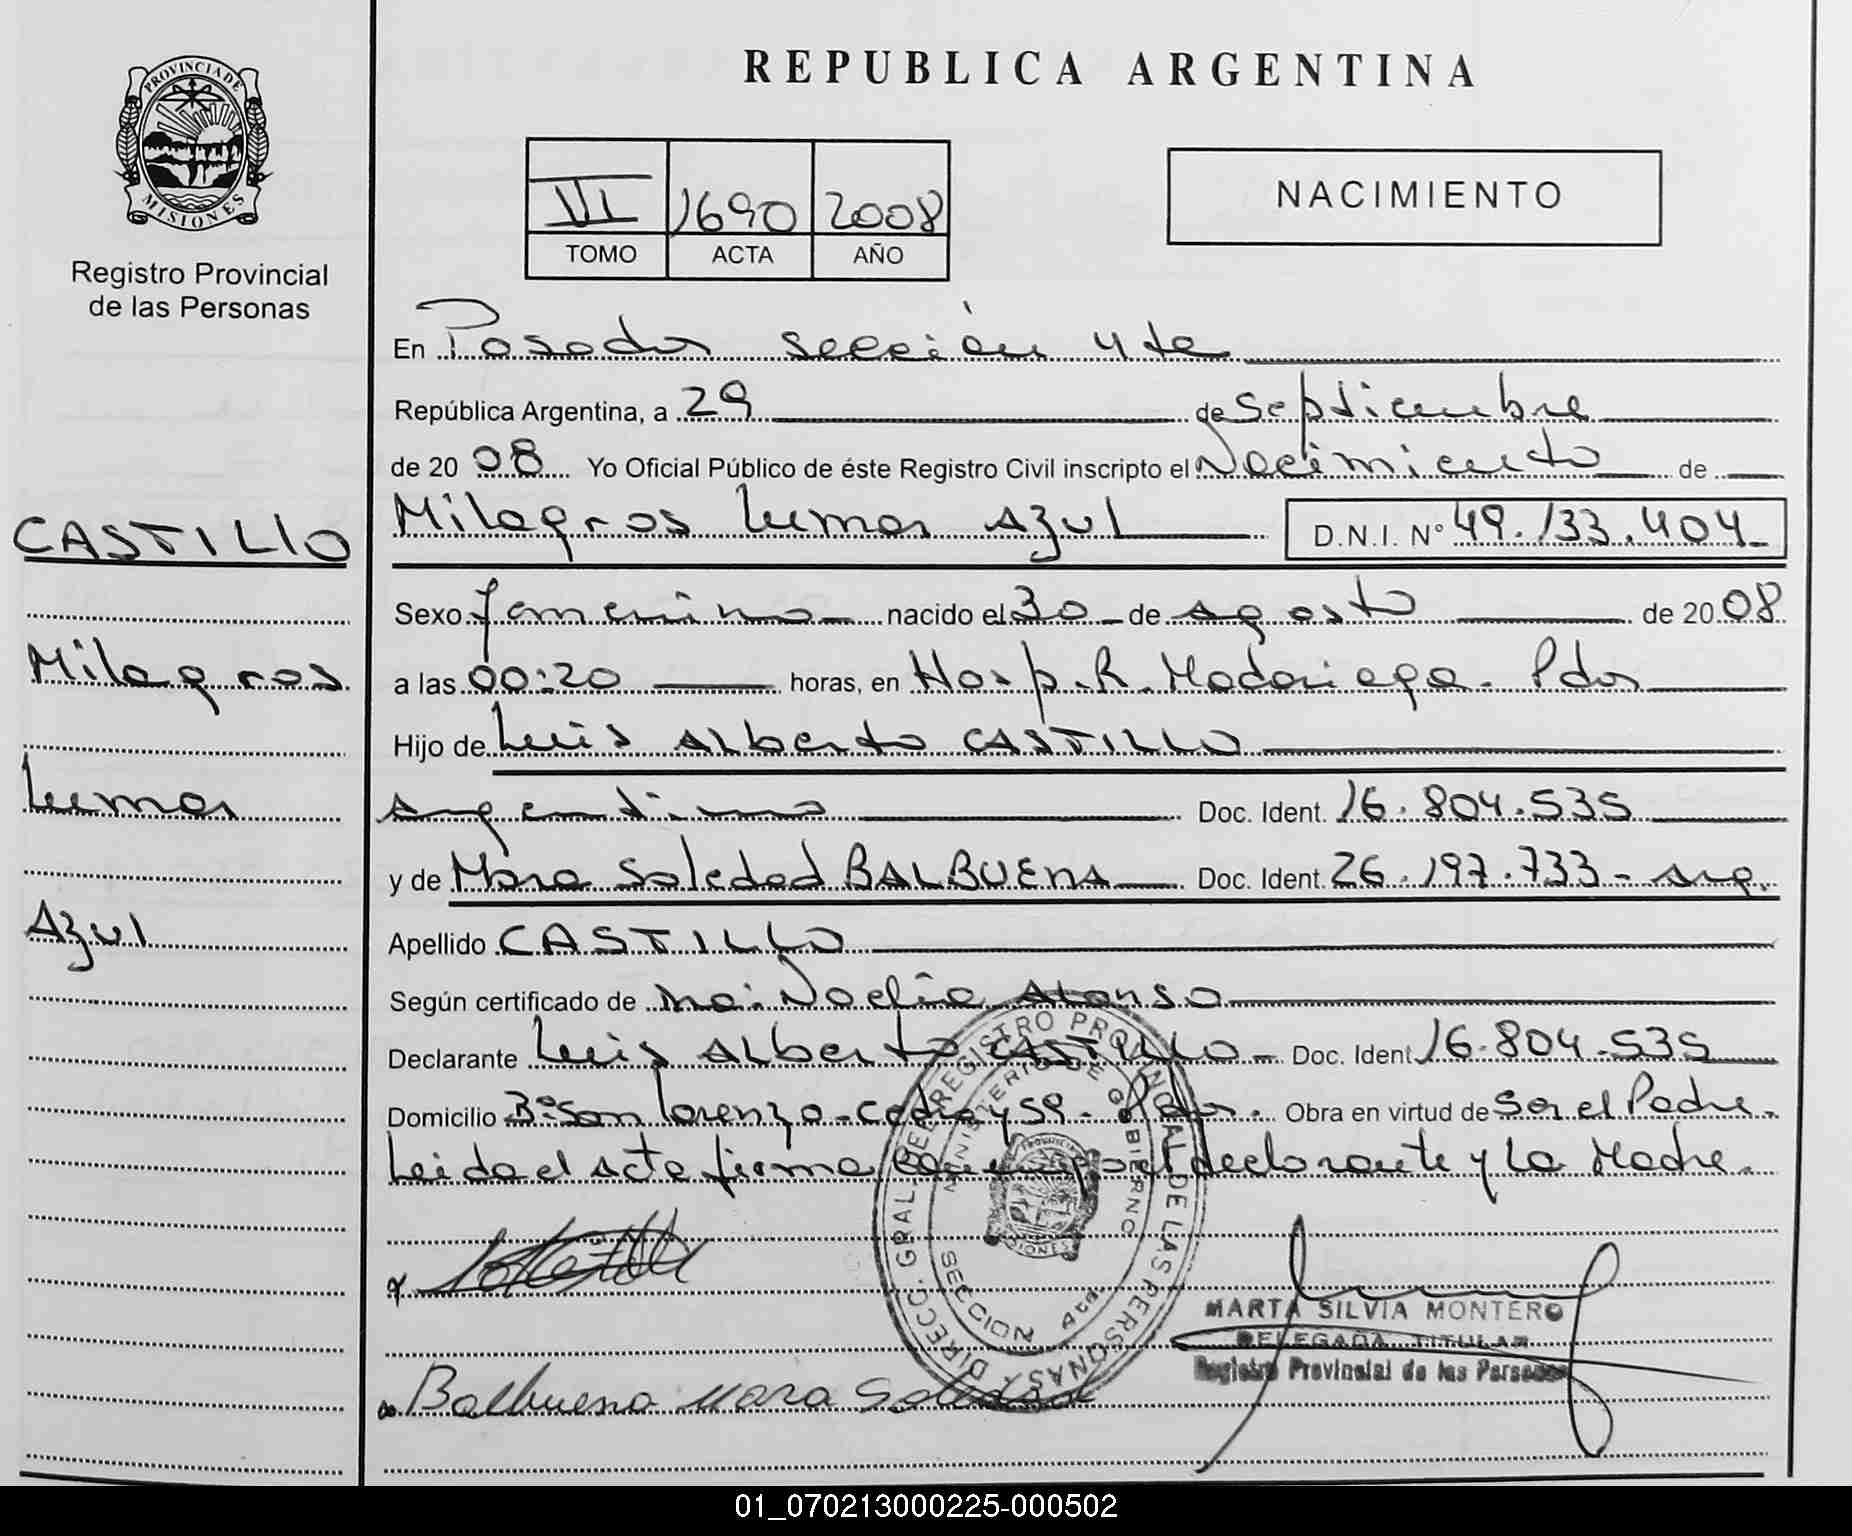 REPUBLICA ARGENTINA
PROVINCIA DE
MISIONES
Registro Provincial
de las Personas
VI 1690 2008
TOMO ACTA AÑO
NACIMIENTO
En Posadas sección 4ta
República Argentina, a 29 de Septiembre
de 20 08 Yo Oficial Público de éste Registro Civil inscripto el Nacimiento de
Milagros Lumar Azul D.N.I. N° 49.133.404
Sexo femenino nacido el 30 de agosto de 20 08
a las 00:20 horas, en Hosp. R. Madariaga. Pdas
Hijo de Luis Alberto CASTILLO
argentino Doc. Ident. 16.804.535
y de Mara Soledad BALBUENA Doc. Ident. 26.197.733 - arg.
Apellido CASTILLO
Según certificado de Noelia Alonso
Declarante Luis Alberto CASTILLO Doc. Ident 16.804.535
Domicilio Bº San Lorenzo - y 59 - Pdas. Obra en virtud de Ser el Padre.
Leida el Acta firma el declarante y la Madre.
CASTILLO
Milagros
Lumar
Azul
DIRECC. GRAL. DEL REGISTRO PROVINCIAL DE LAS PERSONAS
MINISTERIO DE GOBIERNO
PROVINCIA
MISIONES
SECCION 4ta.
MARTA SILVIA MONTERO
DELEGADA TITULAR
Registro Provincial de las Personas
Balbuena Mara Soledad
01_070213000225-000502